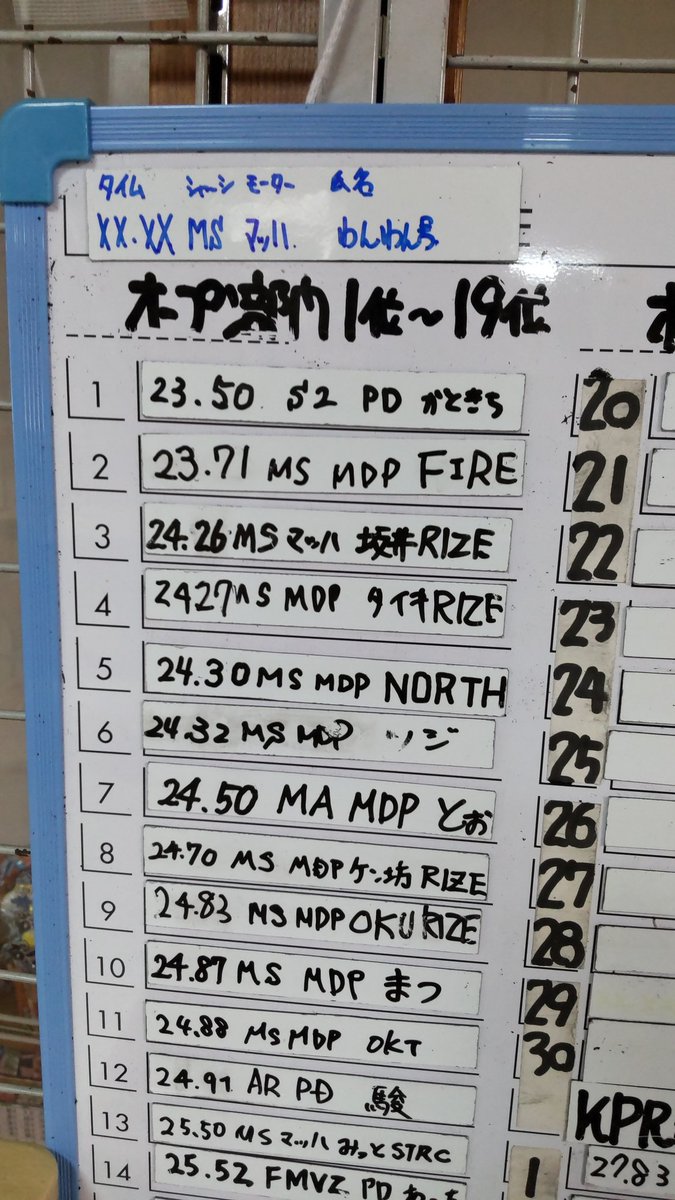 タイム シャーシ モーター 氏名
XX.XX MS マッハ わんわん号
オープン部内 1位～19位
1 23.50 S2 PD かときち
2 23.71 MS MDP FIRE
3 24.26 MS マッハ 坂井RIZE
4 2427 MS MDP タイキRIZE
5 24.30 MS MDP NORTH
6 24.32 MS MDP ツジ
7 24.50 MA MDP とお
8 24.70 MS MDP ケン坊 RIZE
9 24.83 MS MDP OKU RIZE
10 24.87 MS MDP まつ
11 24.88 MS MDP OKT
12 24.91 AR PD 駿
13 25.50 MS マッハ みっとSTRC
14 25.52 FMVZ PD
20
21
22
23
24
25
26
27
28
29
30
KPR
1 27.83